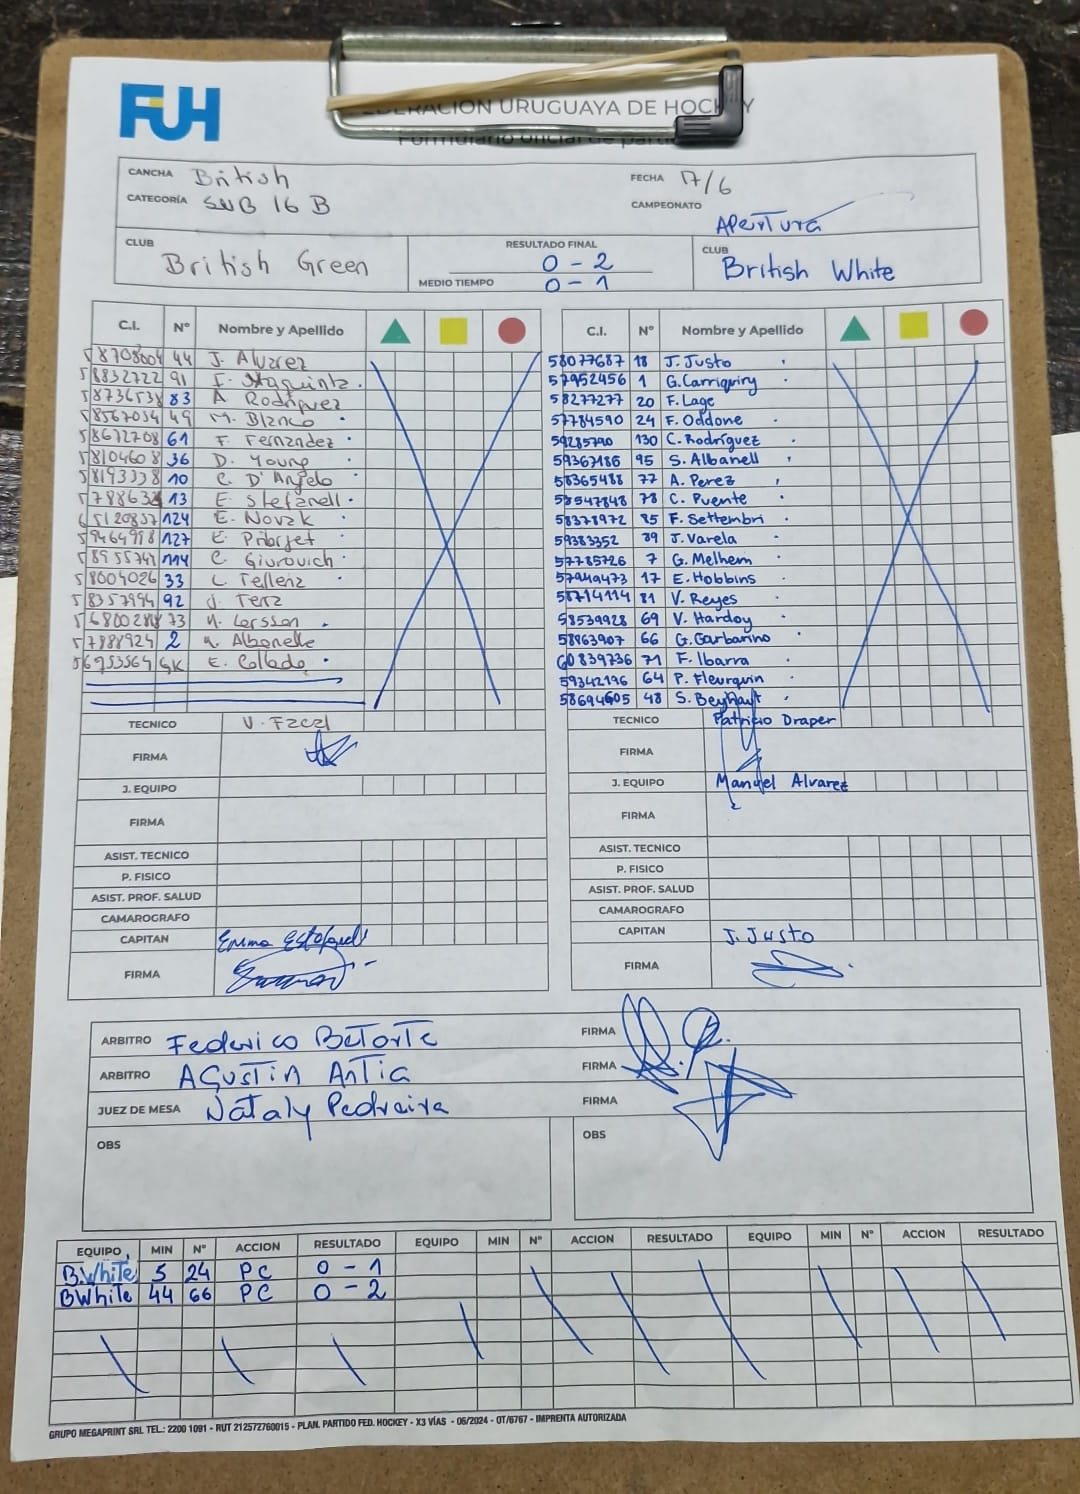 FUH
FEDERACIÓN URUGUAYA DE HOCKEY
Formulario oficial de partido
CANCHA British FECHA 17/6
CATEGORÍA SUB 16 B CAMPEONATO Apertura
CLUB British Green RESULTADO FINAL 0 - 2 CLUB British White
MEDIO TIEMPO 0 - 1
C.I. N° Nombre y Apellido C.I. N° Nombre y Apellido
58708604 44 J. Alvarez 58077687 18 J. Justo
58832722 91 57952456 1 G. Carriquiry
58736538 83 A Rodriguez 58277277 20 F. Lage
58567034 49 M. Blanco 57784590 24 F. Oddone
58672708 61 F. Fernandez 59285790 130 C. Rodríguez
58104608 36 D. Young 59363186 95 S. Albanell
58193338 10 C. D'Angelo 58365488 77 A. Perez
13 E. Stefanell 58547848 78 C. Puente
124 E. Novak 58378972 85 F. Settembri
59464998 127 59383352 39 J. Varela
114 C. Giurovich 57785726 7 G. Melhem
58004026 33 L. Tellenz 57949473 17 E. Hobbins
58357994 92 J. Terz 58714114 81 V. Reyes
73 Larsson 58539928 69 V. Hardoy
57888924 2 Albanelle 58963907 66 G. Garbarino
56953564 GK E. Collado 60839736 71 F. Ibarra
59342196 64 P. Fleurquin
58694605 48 S. Beyhaut
TECNICO TECNICO Patricio Draper
FIRMA FIRMA
J. EQUIPO J. EQUIPO Manuel Alvarez
FIRMA FIRMA
ASIST. TECNICO ASIST. TECNICO
P. FISICO P. FISICO
ASIST. PROF. SALUD ASIST. PROF. SALUD
CAMAROGRAFO CAMAROGRAFO
CAPITAN Emma CAPITAN J. Justo
FIRMA FIRMA
ARBITRO Federico Betorte FIRMA
ARBITRO Agustin Antia FIRMA
JUEZ DE MESA Nataly Pedreira FIRMA
OBS OBS
EQUIPO MIN N° ACCION RESULTADO EQUIPO MIN N° ACCION RESULTADO EQUIPO MIN N° ACCION RESULTADO
B.White 5 24 PC 0 - 1
BWhite 44 66 PC 0 - 2
GRUPO MEGAPRINT SRL TEL.: 2200 1091 - RUT 212572760015 - PLAN. PARTIDO FED. HOCKEY - X3 VÍAS - 06/2024 - OT/6767 - IMPRENTA AUTORIZADA